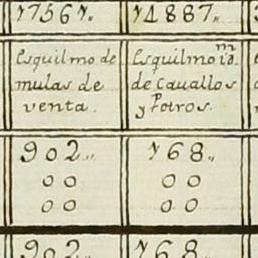 17561„ 14887„
Esquilmo de Esquilmo m
mulas de de Cavallos
venta. y Potros.
902„ 168„
00 00
00 00
902„ 168„